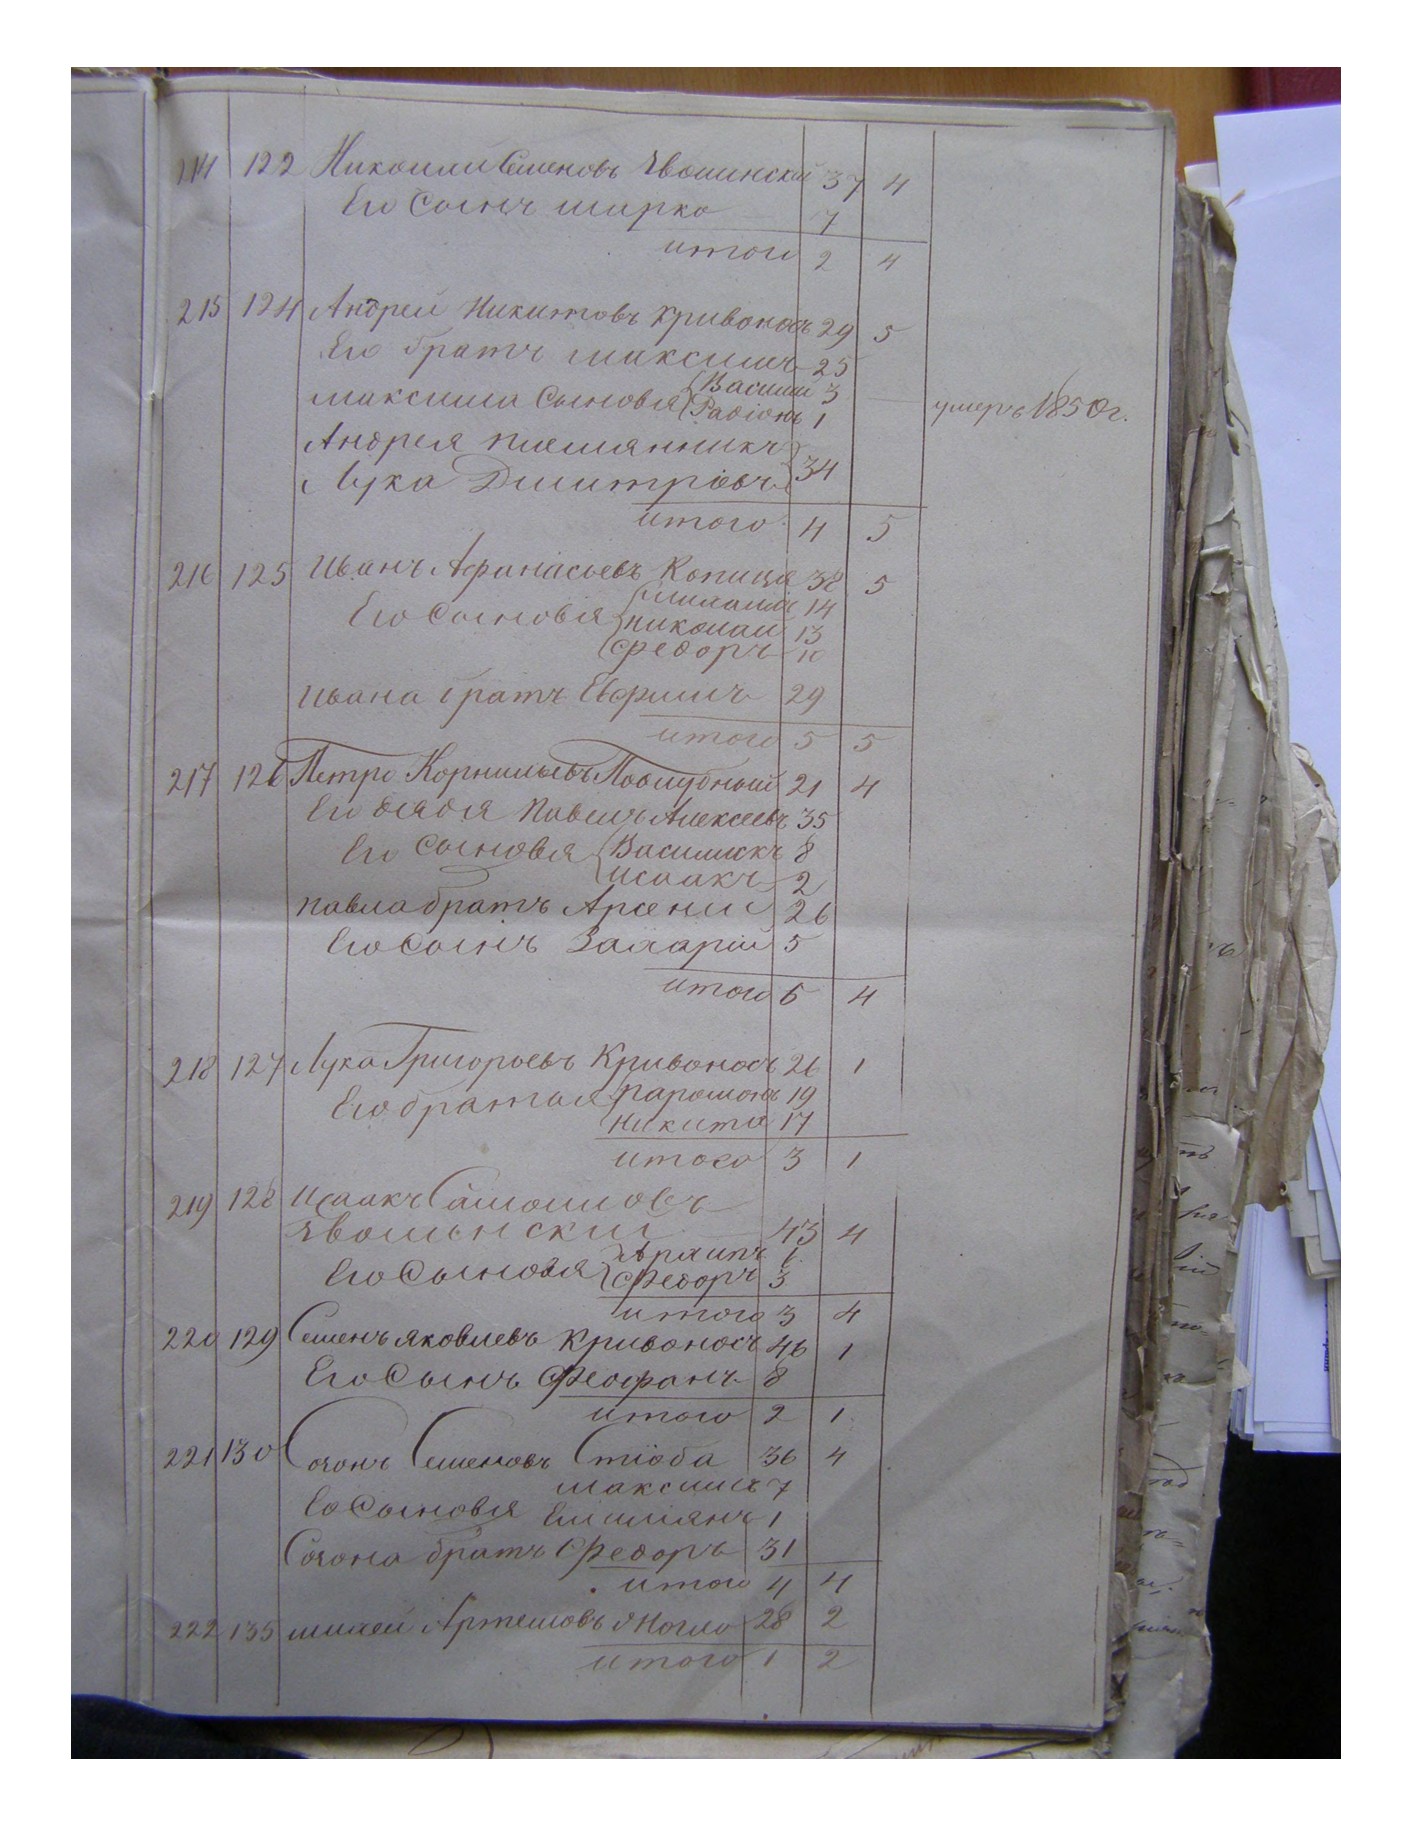 214 122 Николай Семеновъ Яволинский 37 4
Его Сынъ Марко 7
итого 2 4
215 124 Андрей Никитовъ Кривоносъ 29 5
Его братъ Максимъ 25
Максима Сыновья Василий 3
Радіонъ 1 умеръ 1850 г.
Андрея племянникъ
Лука Дмитріевъ 34
итого 4 5
216 125 Иванъ Афанасьевъ Копица 38 5
Михаилъ 14
Его Сыновья Николай 13
Федоръ 10
Ивана братъ Евфимъ 29
итого 5 5
217 126 Петро Корнильевъ Поолубный 21 4
Его дядя Павелъ Алексеевъ 35
Его Сыновья Василискъ 8
Исаакъ 2
Павла братъ Арсений 26
Его Сынъ Захарий 5
итого 6 4
218 127 Лука Григорьевъ Кривоносъ 26 1
Его братья Парамонъ 19
Никита 17
итого 3 1
219 128 Исаакъ Самойловъ
Яволинский 43 4
Архипъ 6
Его Сыновья Федоръ 3
итого 3 4
220 129 Семенъ Яковлевъ Кривоносъ 46 1
Его Сынъ Феофанъ 8
итого 2 1
221 130 Созонъ Семеновъ Стіоба 36 4
Максимъ 7
Его Сыновья Емилиянъ 1
Созона братъ Федоръ 31
итого 4 4
222 135 Михей Артемовъ 28 2
итого 1 2